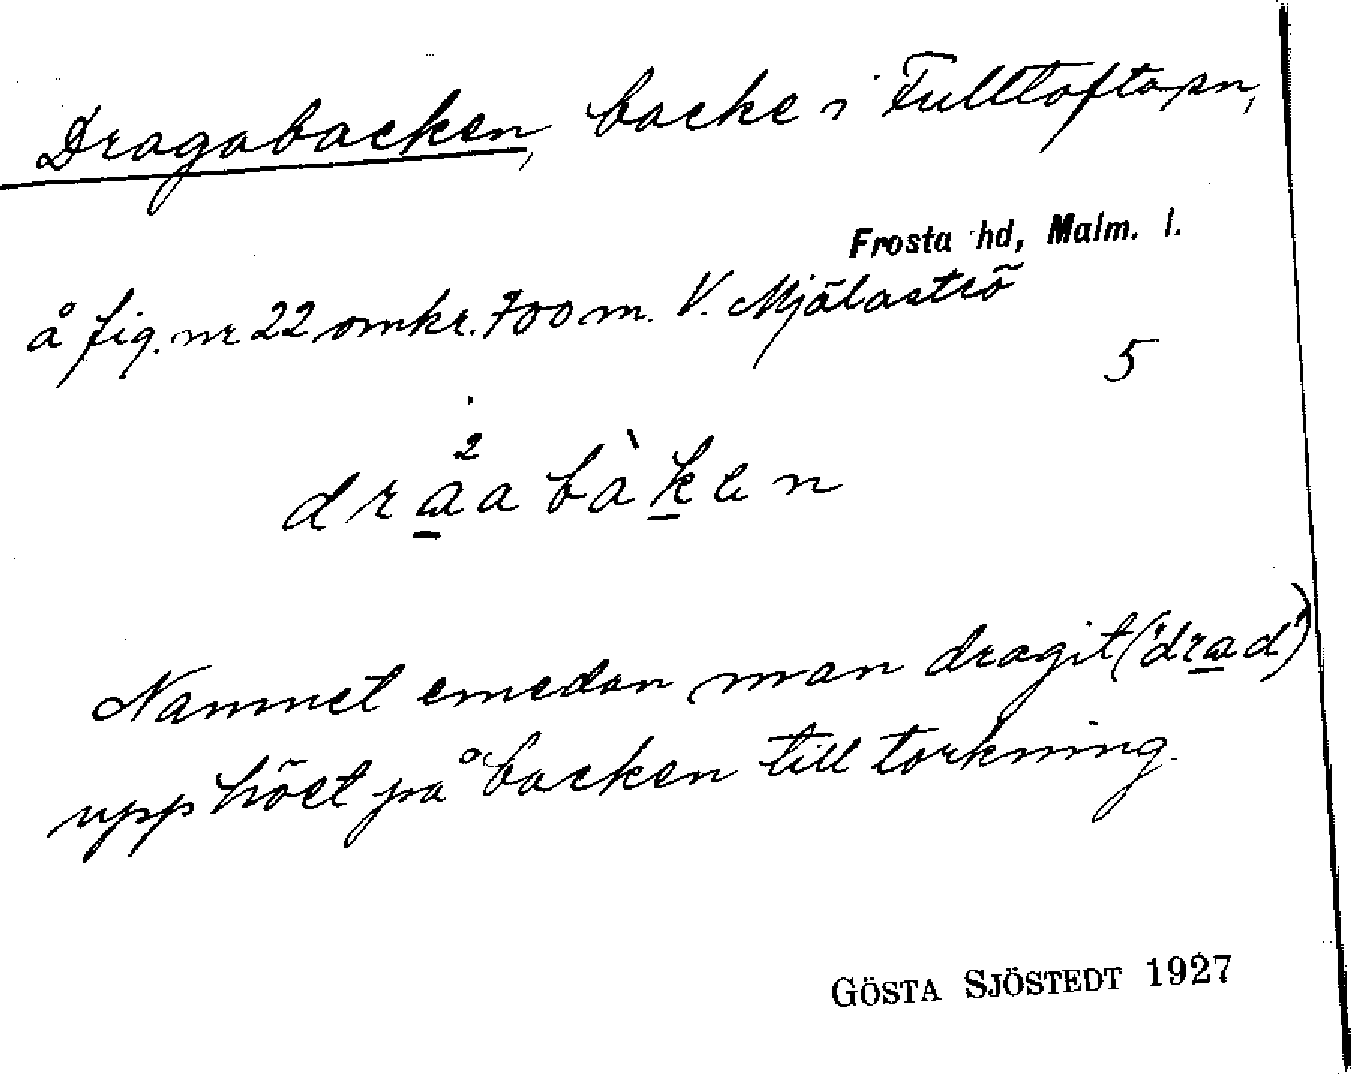 Dragabacken, backe i Fulltofta sn,
Frosta hd, Malm. l.
å fig. nr 22 omkr. 700 m. V. Mjälaströ
5
2
draabàken
Namnet emedan man dragit (drad)
upp höet på backen till torkning.
GÖSTA SJÖSTEDT 1927